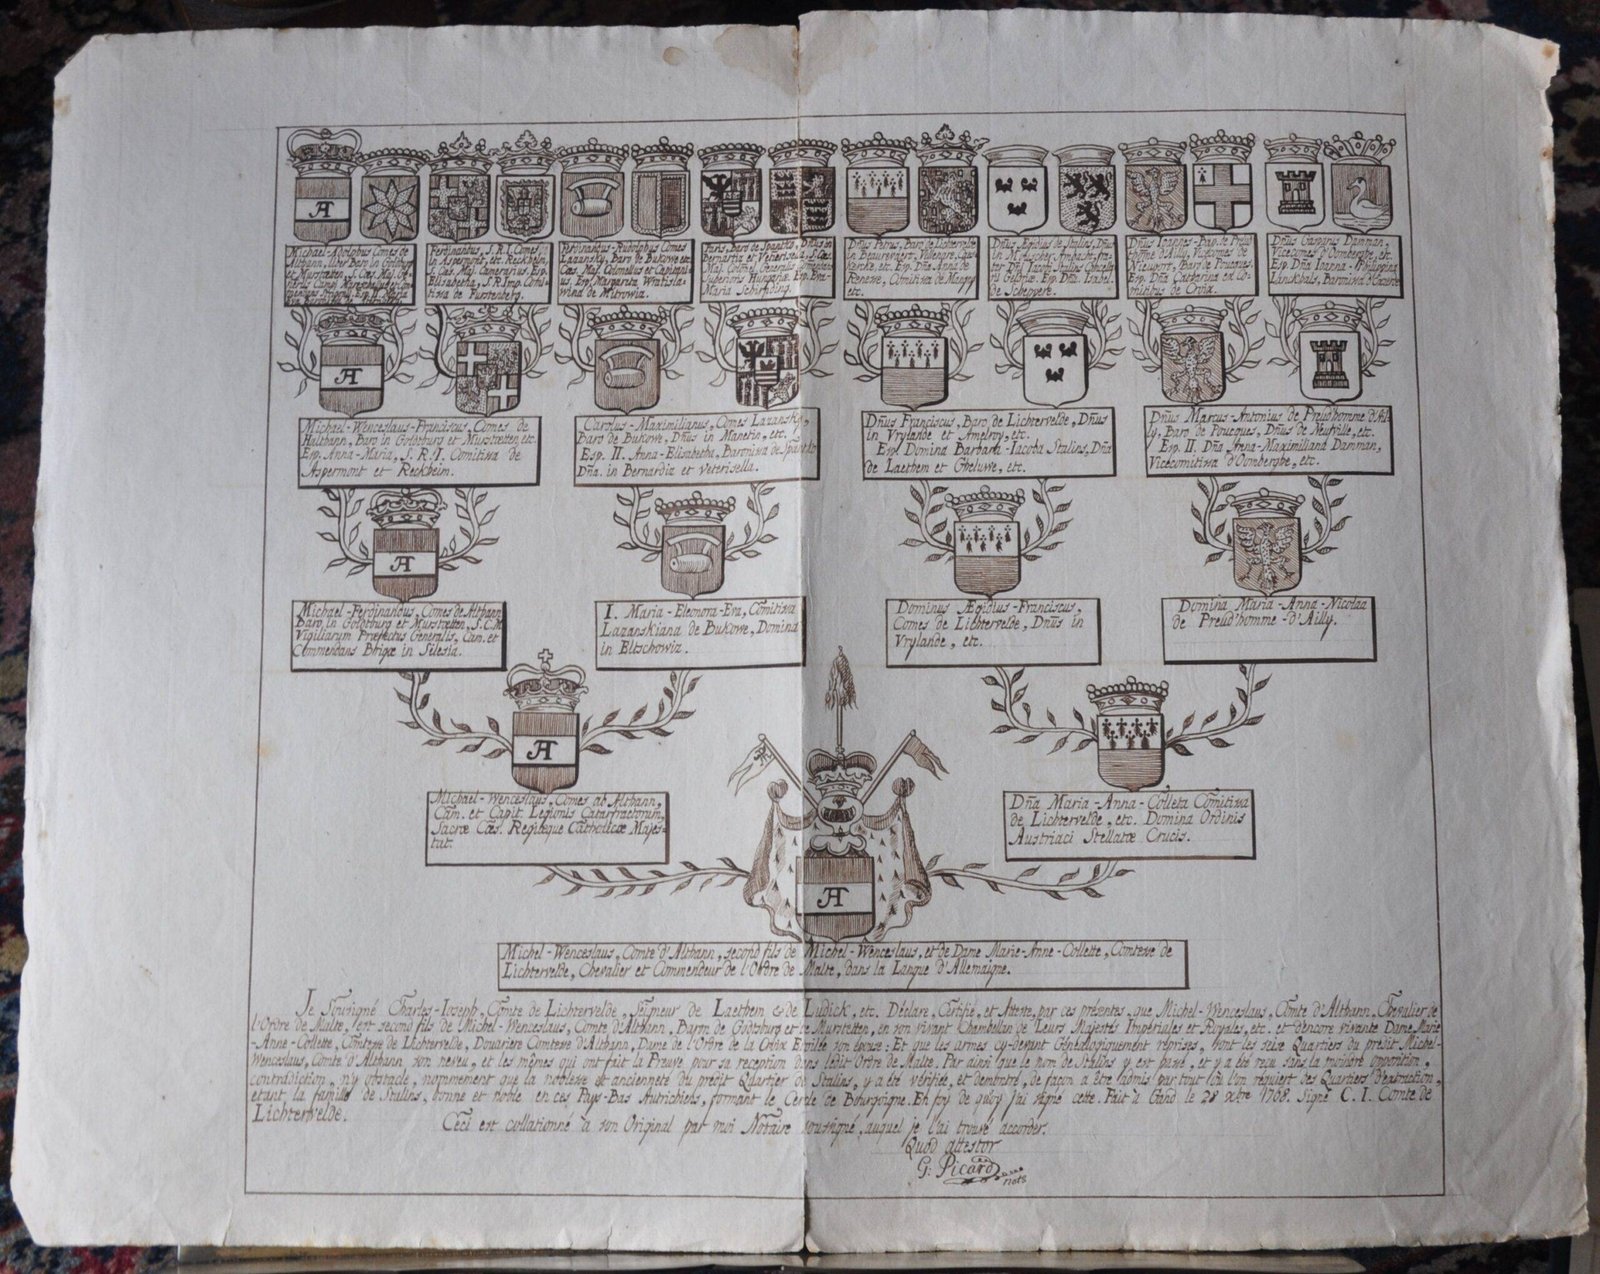 Michael-Adolphus Comes de
Althann, liber Baro in Goldburg
et Murstætten, S. Cæs. Maj.
Ferdinandus, S. R. I. Comes
in Aspermont, et Reckheim,
S. Cæs. Maj. Camerarius, Esp.
Elisabetha, S. R. Imp. Comi-
tiva de Furstenberg.
Ferdinandus-Rudolphus Comes
Lazansky, Baro de Bukowe etc.
Cæs. Maj. Colonellus et Capitan-
us, Esp. Margarita Wratisla-
wina de Mitrowia.
Baro de Spaneto, Dnũs in
Bernartia et Veterisella, S. Cæs.
Maria Schirnding.
Dnũs Petrus, Baro de Lichtervelde
in Beaurewart, Villenpre, Caes-
kercke, etc. Esp. Dña. Anna de
Renewe, Comitiva de
etc.
Dnũs Ægidius de Stalins, Dnũs
Esp. Dña. Isabel.
de Scheppere.
Dnũs Ioannes-Bap. de Preud-
homme d'Ailly, Vicecomes de
Nieuport, Baro de Poucques,
Esp. Dña Catharina ex Co-
mitibus de Croix.
Dnũs Gasparus Damman,
Vicecomes d'Oomberghe, etc.
Esp. Dña Ioanna-Philippina
Lanckhals, Baronissa d'Exaerde
Michael-Wenceslaus-Franciscus, Comes de
Halthann, Baro in Goldtburg et Murstætten etc.
Esp. Anna-Maria, S. R. I. Comitiva de
Aspermont et Reckheim.
Carolus-Maximilianus, Comes Lazansky,
Baro de Bukowe, Dnũs in Manetin, etc.
Esp. II. Anna-Elisabetha, Baroniva de Spaneto
Dña. in Bernardia et Veterisella.
Dnũs Franciscus, Baro de Lichtervelde, Dnũs
in Vrylande et Amelroy, etc.
Esp. Domina Barbara-Iacoba Stalins, Dña
de Laethem et Gheluwe, etc.
Dnũs Marcus-Antonius de Preud'homme d'Ail-
ly, Baro de Poucques, Dnũs de Neufville, etc.
Esp. II. Dña Anna-Maximiliana Damman,
Vicecomitiva d'Oomberghe, etc.
Michael-Ferdinandus, Comes de Althann
Baro in Goldtburg et Murstætten, S. C. M.
Vigiliarum Præfectus Generalis, Cam. et
Commendans Brigæ in Silesia.
I. Maria-Eleonora-Eva, Comitiva
Lazanskiana de Bukowe, Domina
in Eltschowiz.
Dominus Ægidius-Franciscus,
Comes de Lichtervelde, Dnũs in
Vrylande, etc.
Domina Maria-Anna-Nicolaa
de Preud'homme-d'Ailly.
Michael-Wenceslaus, Comes ab Althann,
Cam. et Capit. Legionis Cataphractorum,
Sacræ Cæs. Regiæque Catholicæ Majes-
tat.
Dña Maria-Anna-Colleta Comitiva
de Lichtervelde, etc. Domina Ordinis
Austriaci Stellatæ Crucis.
Michel-Wenceslaus, Comte d'Althann, second fils de Michel-Wenceslaus, et de Dame Marie-Anne-Collette, Comtesse de
Lichtervelde, Chevalier et Commendeur de l'Ordre de Malte, dans la Langue d'Allemaigne.
Je Sousigné Charles-Ioseph, Comte de Lichtervelde, Seigneur de Laethem & de Ludick, etc. Déclare, Certifie, et Atteste par ces présentes, que Michel-Wenceslaus, Comte d'Althann, Chevalier de
l'Ordre de Malte, est second fils de Michel-Wenceslaus, Comte d'Althann, Baron de Goldtsburg et de Murstetten, en son vivant Chambelan de Leurs Majestés Impériales et Royales, etc. et d'encore vivante Dame Marie
-Anne-Collette, Comtesse de Lichtervelde, Douairière Comtesse d'Althann, Dame de l'Ordre de la Croix Etoilée son épouse: Et que les armes cy-devant Généalogiquement reprises, sont les seize Quartiers du prédit Michel-
Wenceslaus, Comte d'Althann son neveu, et les mêmes qui ont fait la Preuve pour sa reception dans ledit Ordre de Malte. Par ainsi que le nom de Stalins y est passé, et y a été reçu sans la moindre opposition,
contradiction, n'y obstacle, nommement que la noblesse et ancienneté du prédit Quartier de Stalins, y a été vérifiée, et demontré, de façon a être admis par tout où l'on réquiert des Quartiers d'extraction,
etant la famille de Stalins, bonne et noble en ces Pays-Bas Autrichiens, formant le Cercle de Bourgoigne. En foy de quoy j'ai signé cette. Fait à Gand le 28 xbre 1768. Signé C. I. Comte de
Lichtervelde.
Ceci est collationné à son Original par moi Notaire sousigné, auquel je l'ai trouvé accorder.
Quod attestor
G: Picard
nots